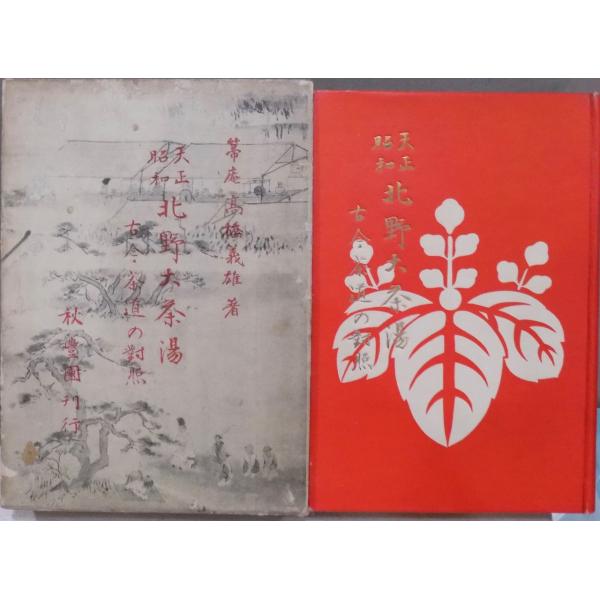 箒庵 高橋義雄著
天正
昭和
北野大茶湯
古今茶道の對照
秋豊園刊行
天正
昭和
北野大茶湯
古今茶道の對照